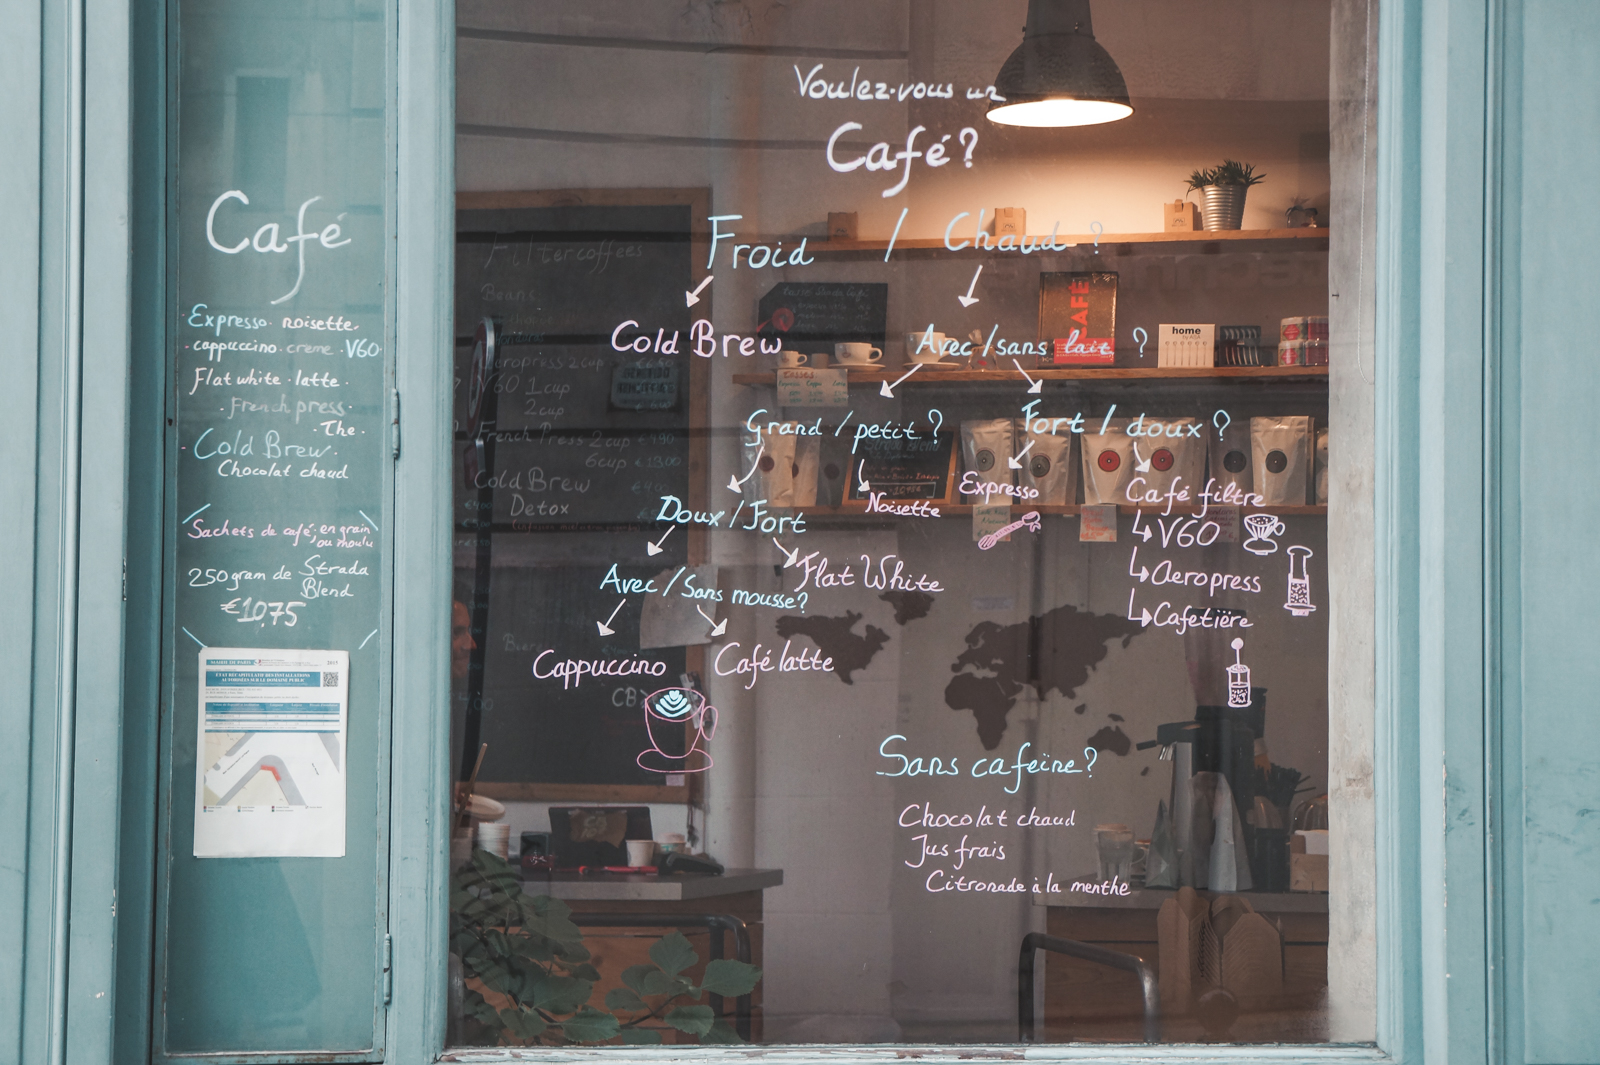 Café
Expresso · noisette ·
· cappuccino · creme · V60 ·
Flat white · latte ·
· French press ·
· The ·
· Cold Brew ·
Chocolat chaud
Sachets de café; en grain
ou moulu
250 gram de Strada
Blend
€10,75
MAIRIE DE PARIS
2015
ETAT RÉCAPITULATIF DES INSTALLATIONS
AUTORISÉES SUR LE DOMAINE PUBLIC
Voulez-vous un
Café?
Froid / Chaud ?
Cold Brew
Avec / sans lait ?
Grand / petit ?
Fort / doux ?
Noisette
Expresso
Café filtre
V60
Aeropress
Cafetière
Doux / Fort
Flat White
Avec / Sans mousse?
Cappuccino
Café latte
Sans cafeïne?
Chocolat chaud
Jus frais
Citronade à la menthe
Filtercoffees
Beans
Aeropress 2cup
V60 1cup
2cup
French Press 2cup €4,90
6cup €13,00
Cold Brew
Detox
CAFÉ
home